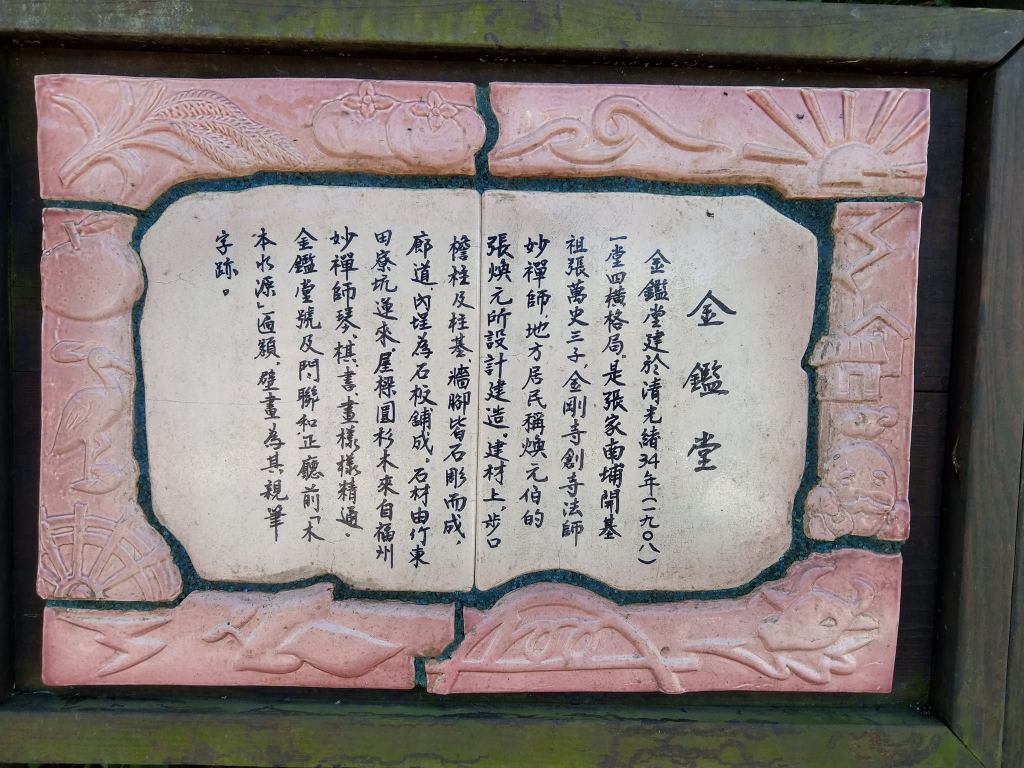 金鑑堂
金鑑堂建於清光緒34年(一九०八)
一堂四橫格局。是張家南埔開基
祖張萬史三子,金剛寺創寺法師
妙禪師,地方居民稱煥元伯的
張煥元所設計建造。建材上,步口
檐柱及柱基、牆腳皆石彫而成,
廊道內埕為石板舖成。石材由竹東
田寮坑運來,屋樑圓杉木來自福州
妙禪師琴、棋、書畫樣樣精通,
金鑑堂號及門聯和正廳前「木
本水源」匾額,壁畫為其親筆
字跡。